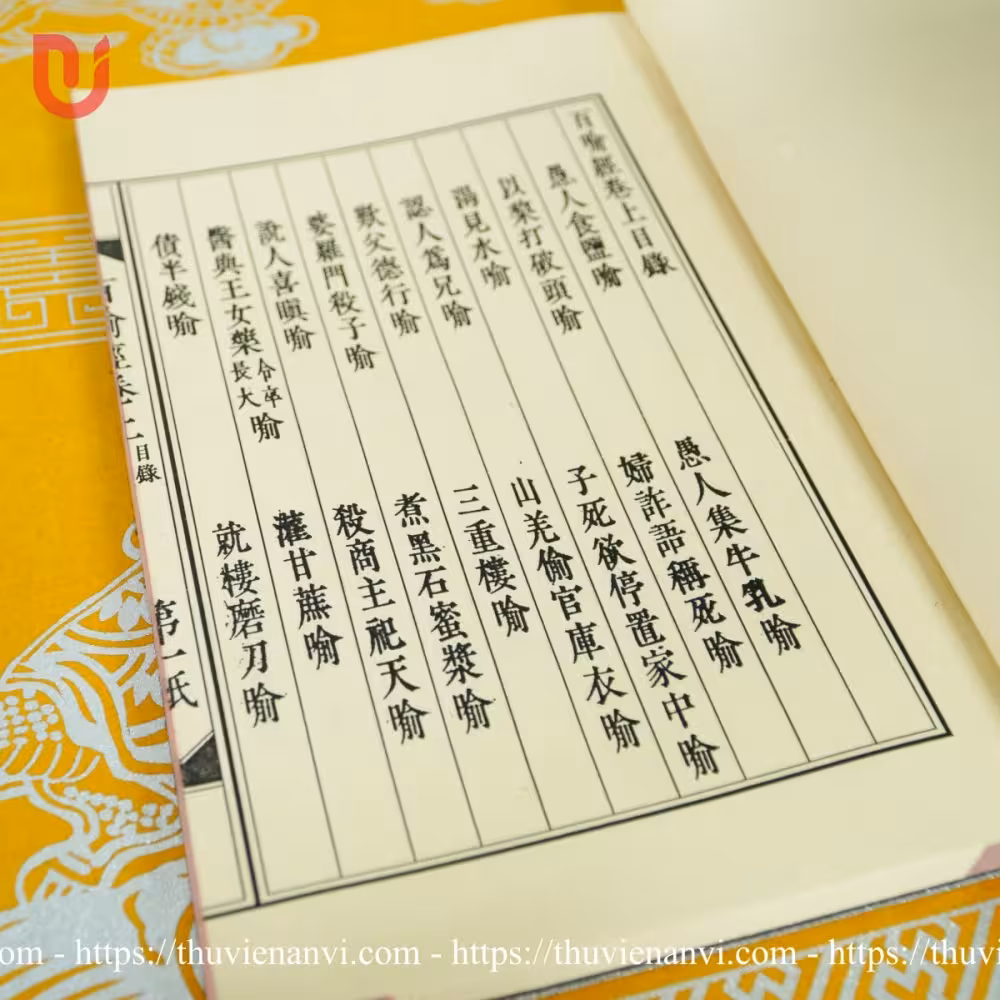 百喻經卷上目錄
愚人食鹽喻 愚人集牛乳喻
以梨打破頭喻 婦詐語稱死喻
渴見水喻 子死欲停置家中喻
認人爲兄喻 山羌偷官庫衣喻
歎父德行喻 三重樓喻
婆羅門殺子喻 煮黑石蜜漿喻
說人喜瞋喻 殺商主祀天喻
醫與王女藥令卒長大喻 灌甘蔗喻
債半錢喻 就樓磨刀喻
目錄 第一
.com - https://thuvienanvi.com - https://thuvienanvi.com - https://thuvi